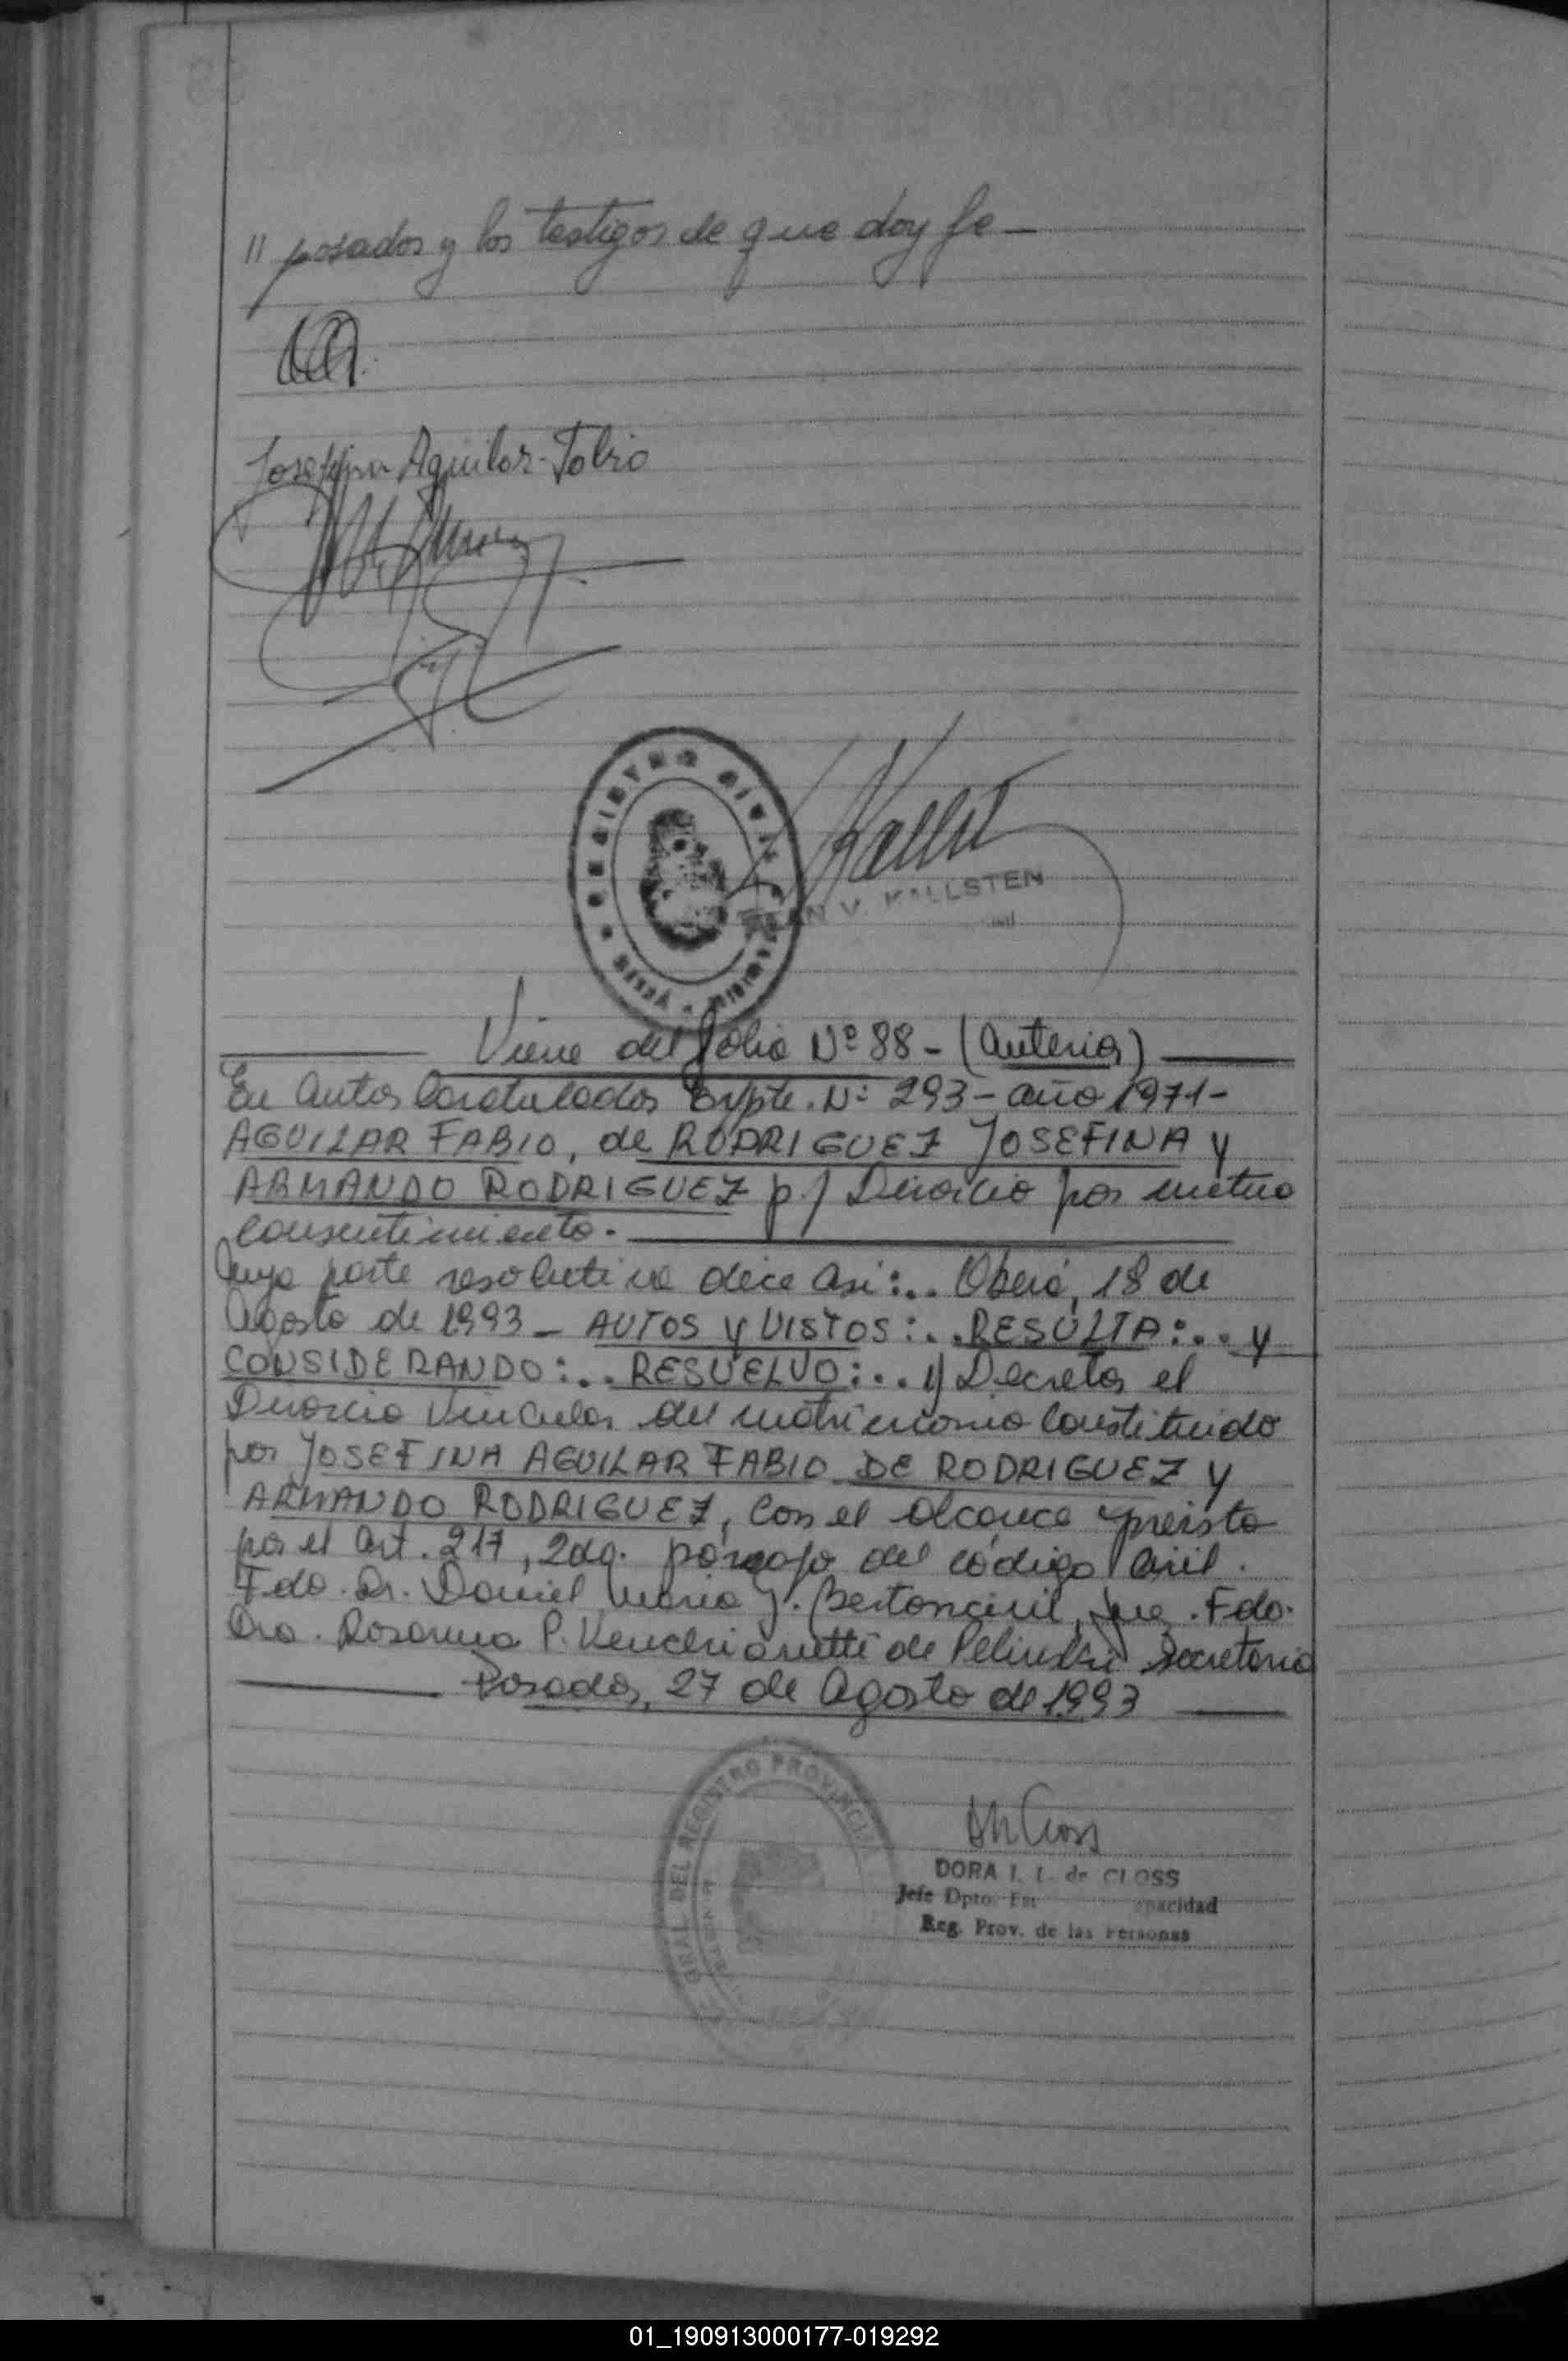 " posados y los testigos de que doy fe —
Josefina Aguilar Fabio
REGISTRO CIVIL
JUAN V. KALLSTEN
Viene del folio Nº 88 - (anterior)
En Autos Caratulados Expte. Nº 293 - año 1971 -
AGUILAR FABIO, de RODRIGUEZ JOSEFINA y
ARMANDO RODRIGUEZ p/ Divorcio por mutuo
consentimiento. -
Cuya parte resolutiva dice asi:.. Oberá, 18 de
Agosto de 1993 - AUTOS y VISTOS:.. RESULTA:.. y
CONSIDERANDO:.. RESUELVO:.. 1) Decretar el
Divorcio Vincular del matrimonio Constituido
por JOSEFINA AGUILAR FABIO DE RODRIGUEZ y
ARMANDO RODRIGUEZ, con el alcance previsto
por el art. 217, 2do. párrafo del código Civil.
Fdo. Dr. Daniel Mario J. Juez. Fdo.
Dra. Rosanna P. de Secretaria
Posadas, 27 de Agosto de 1993
GRAL DEL REGISTRO PROVINCIAL
DORA I. L. de CLOSS
Jefe Dpto. Est apacidad
Reg. Prov. de las Personas
01_190913000177-019292